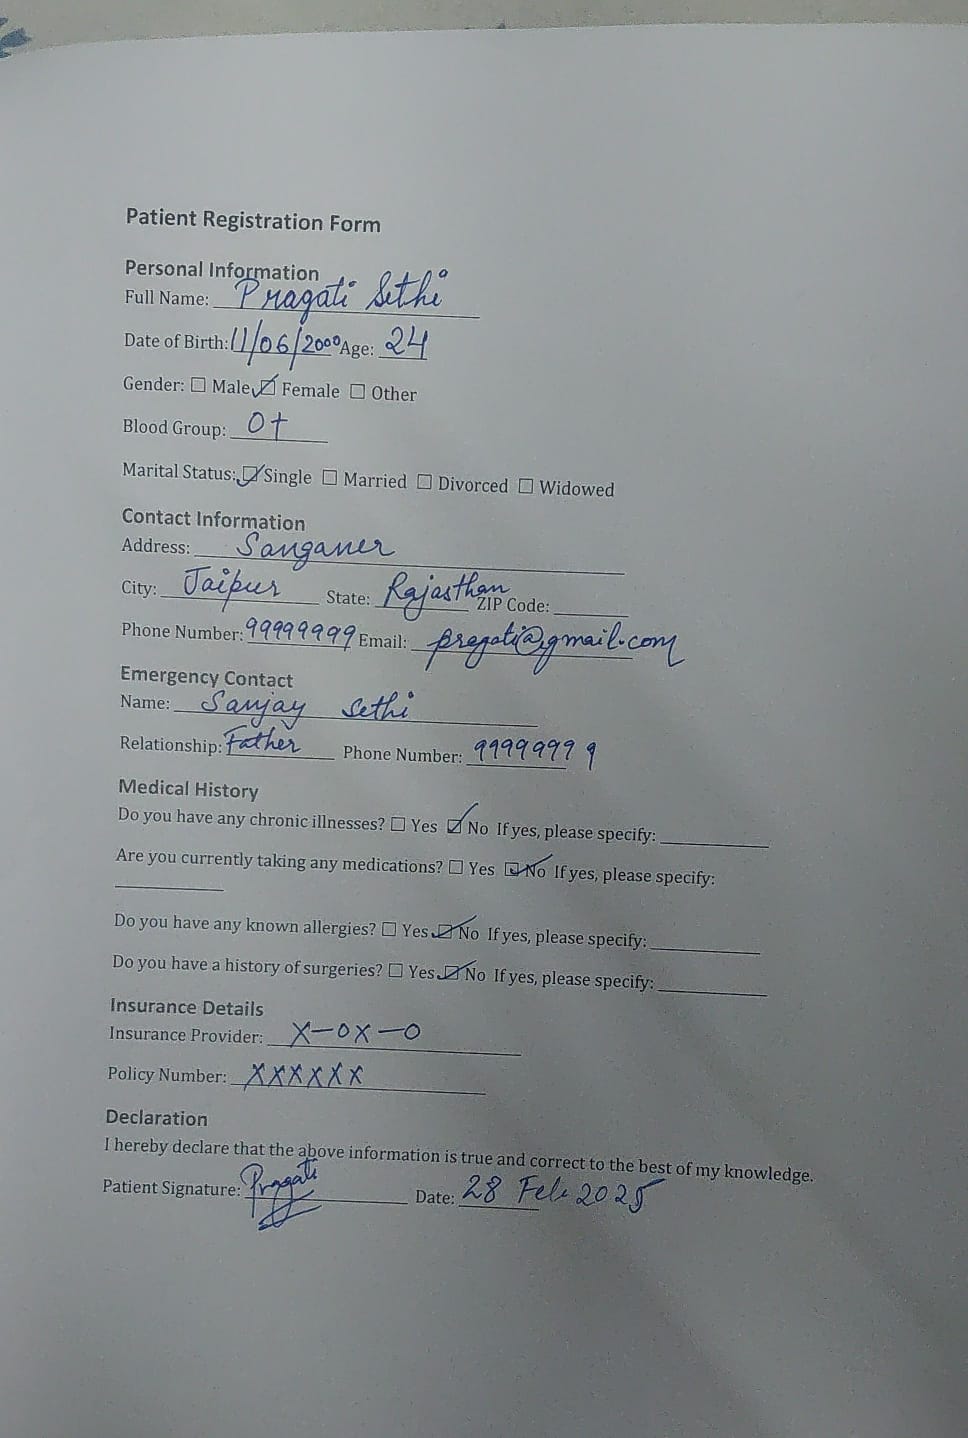 Patient Registration Form
Personal Information
Full Name: Pragati Sethi
Date of Birth: 11/06/2000 Age: 24
Gender: ☐ Male ☑ Female ☐ Other
Blood Group: O+
Marital Status: ☑ Single ☐ Married ☐ Divorced ☐ Widowed
Contact Information
Address: Sanganer
City: Jaipur State: Rajasthan ZIP Code: ______
Phone Number: 99999999 Email: pragati@gmail.com
Emergency Contact
Name: Sanjay Sethi
Relationship: Father Phone Number: 99999999
Medical History
Do you have any chronic illnesses? ☐ Yes ☑ No If yes, please specify: ______
Are you currently taking any medications? ☐ Yes ☑ No If yes, please specify:
______
Do you have any known allergies? ☐ Yes ☑ No If yes, please specify: ______
Do you have a history of surgeries? ☐ Yes ☑ No If yes, please specify: ______
Insurance Details
Insurance Provider: X-OX-O
Policy Number: XXXXXX
Declaration
I hereby declare that the above information is true and correct to the best of my knowledge.
Patient Signature: Pragati Date: 28 Feb 2025